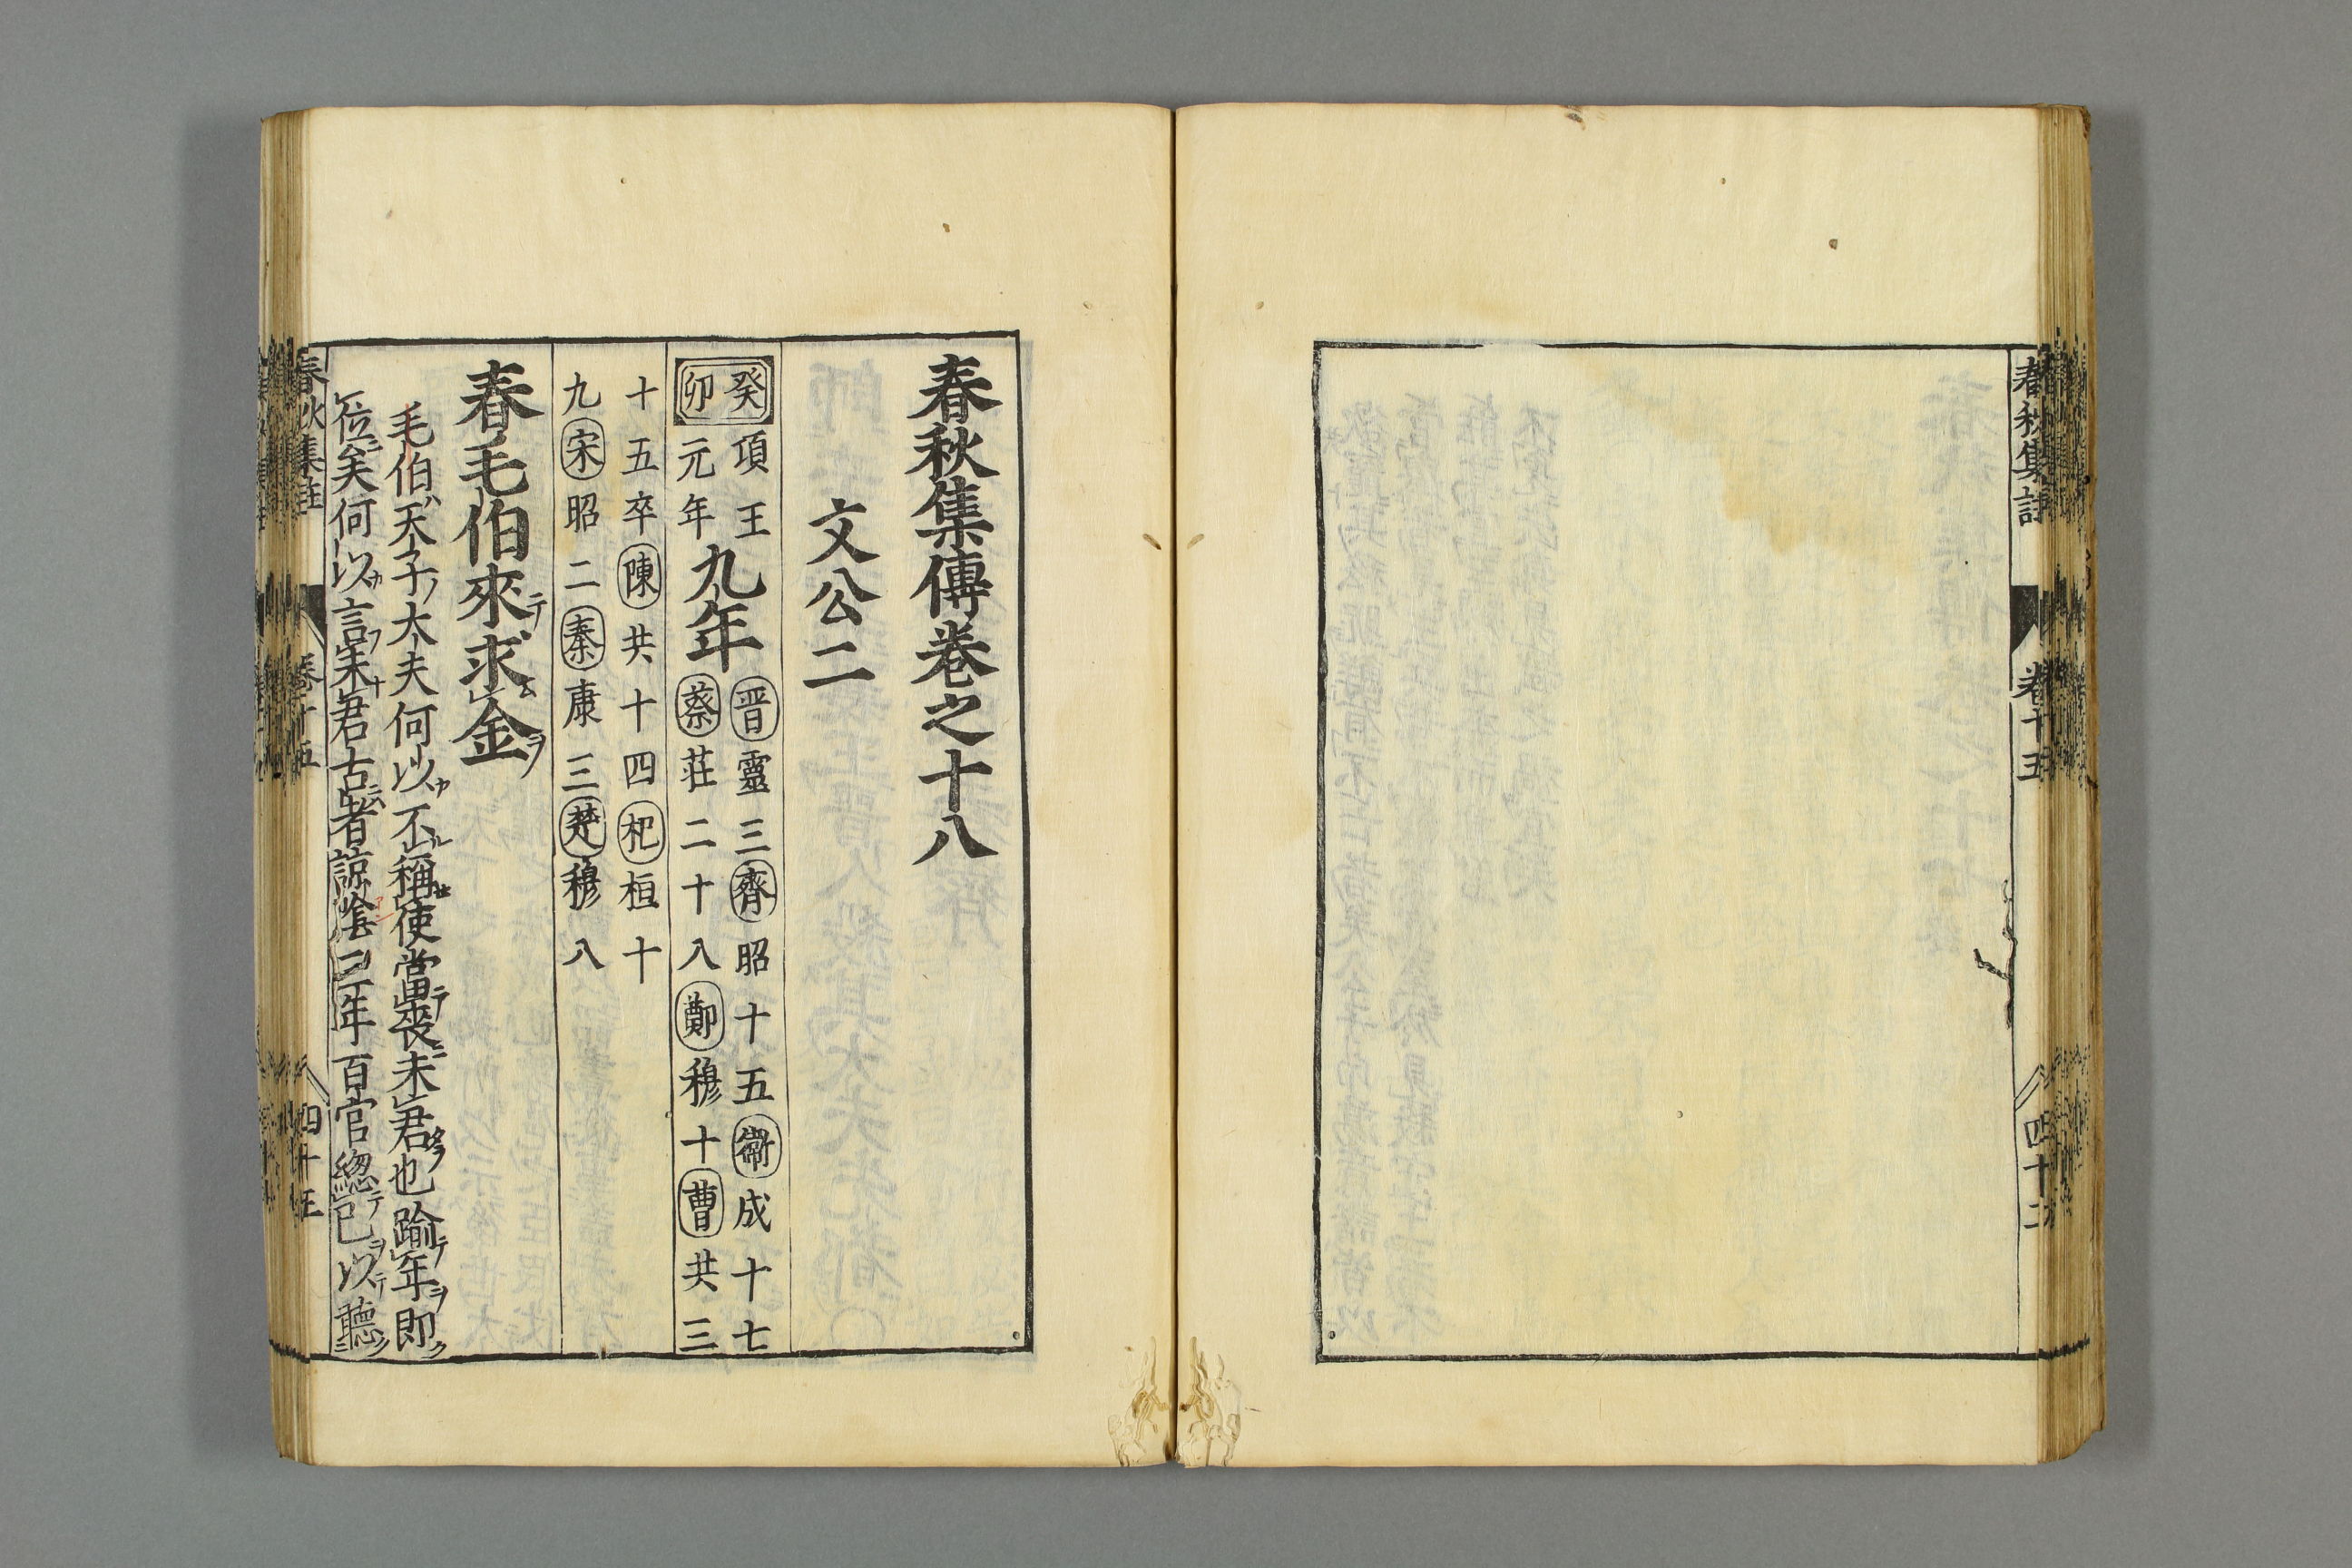 春秋集註
卷十五
春秋集傳卷之十八
文公二
癸卯
項王元年
九年
晋靈三齊昭十五衞成十七
蔡莊二十八鄭穆十曹共三
十五卒陳共十四杞桓十
九宋昭二秦康三楚穆八
春毛伯來テ求ム金ヲ
毛伯ハ天子ノ大夫何以カ不ル稱セ使當テ喪ニ未君タラ也踰テ年ヲ即ク
位ニ矣何以カ言フ未ナ君古者ニハ諒陰三年百官緫テ已ヲ以テ聽ク
春秋集註
卷十五
四十五